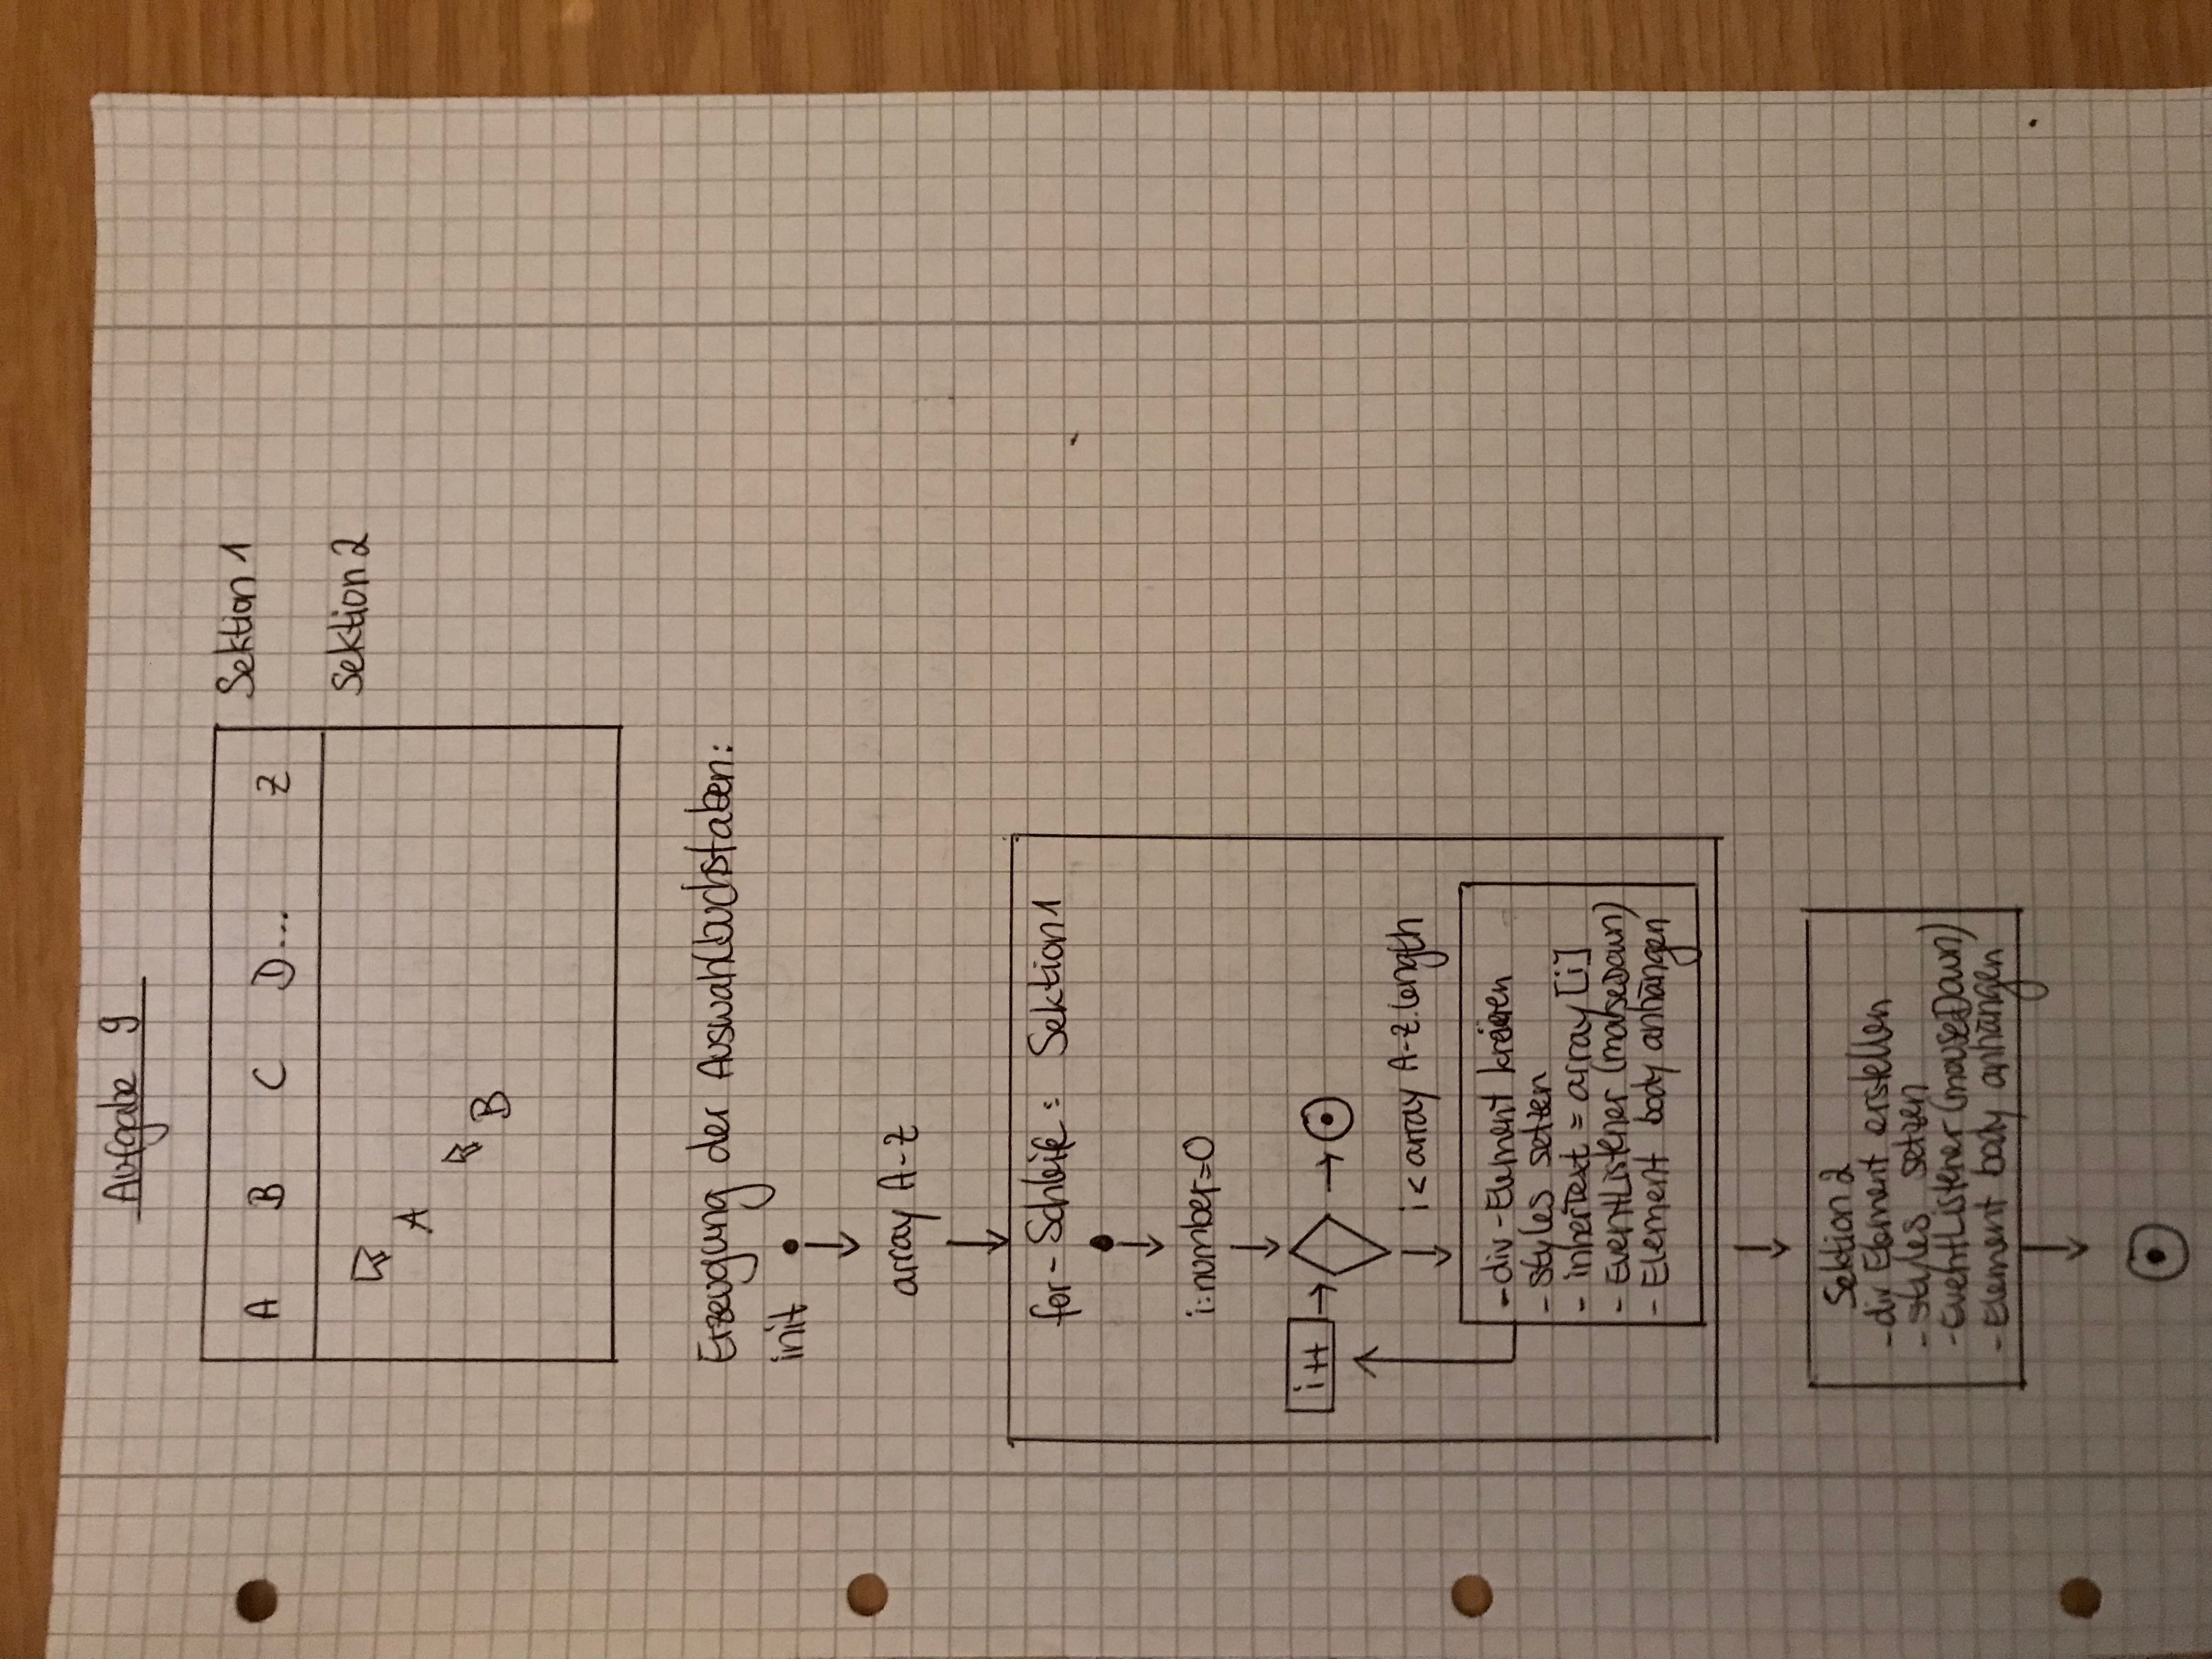 Aufgabe 9
A B C D... Z
Sektion 1
Sektion 2
A
B
Erzeugung der Auswahlbuchstaben:
init
array A-Z
for-Schleife: Sektion 1
i:number=0
i++
i < array A-Z.length
- div-Element kreieren
- styles setzen
- innerText = array [i]
- EventListener (mouseDown)
- Element body anhängen
Sektion 2
- div Element erstellen
- styles setzen
- EventListener (mouseDown)
- Element body anhängen